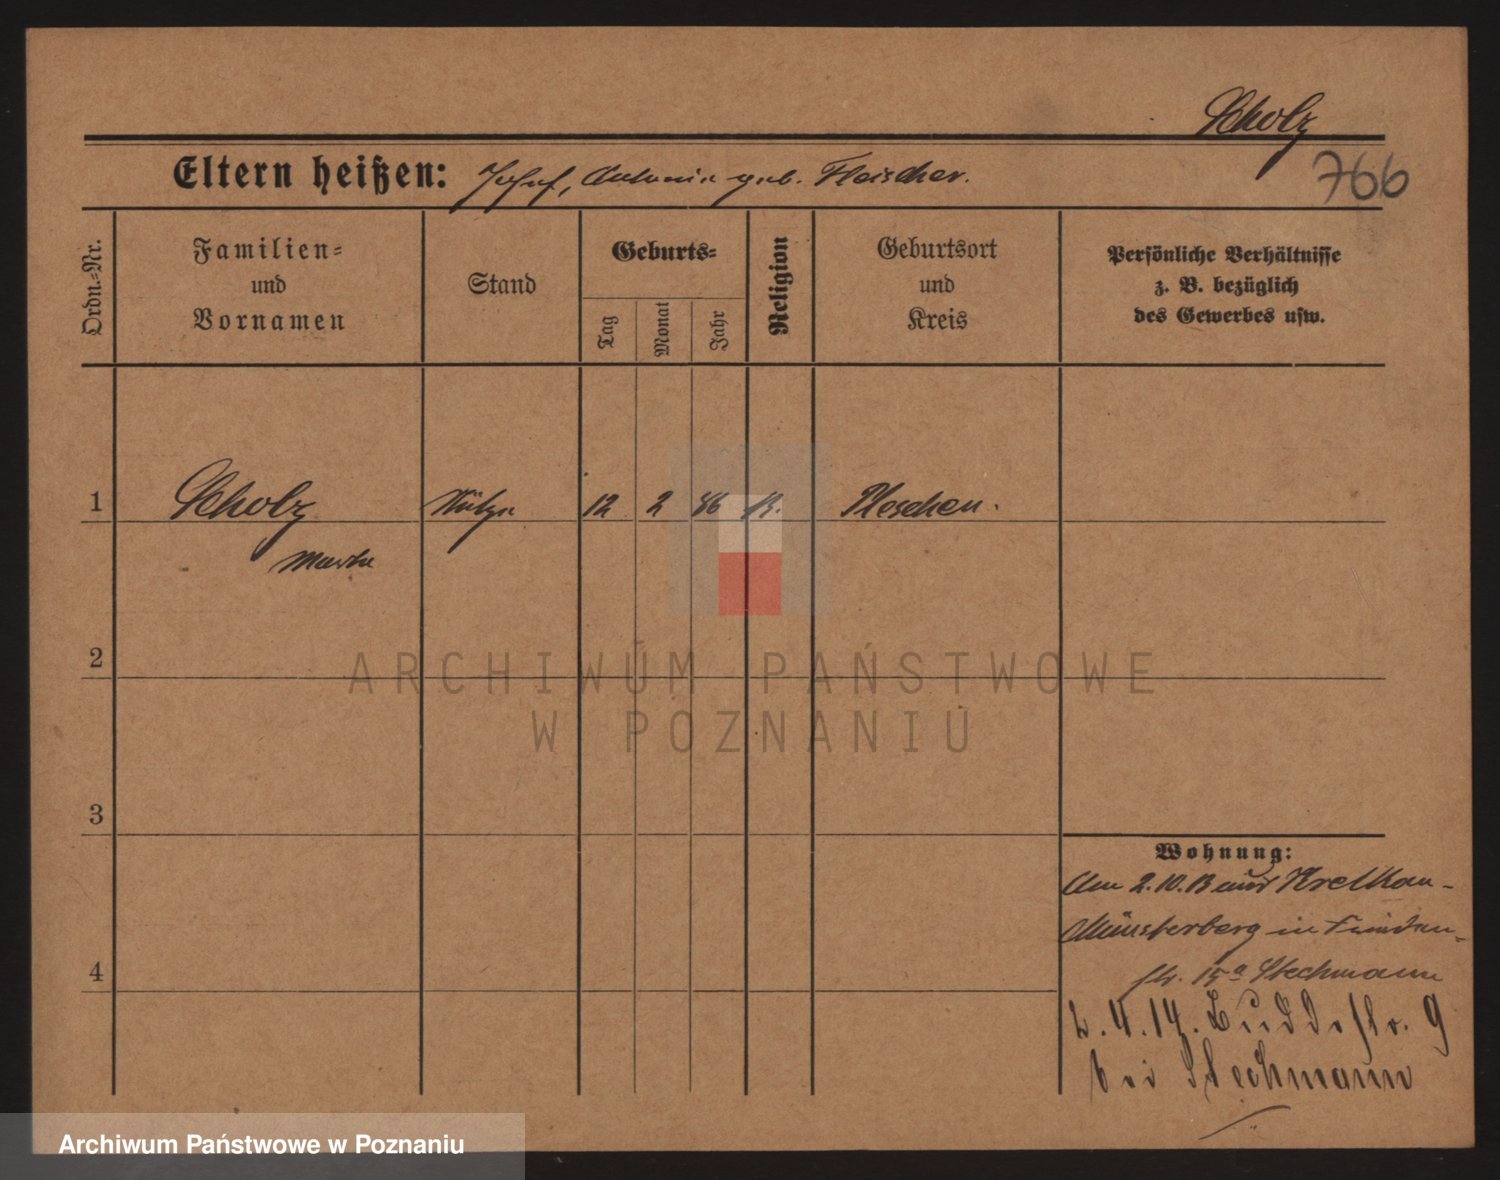 Scholz
Eltern heißen: Josef, Antonie geb. Fleischer.
766
Ordn.-Nr.
Familien-
und
Vornamen
Stand
Geburts-
Tag
Monat
Jahr
Religion
Geburtsort
und
Kreis
Persönliche Verhältnisse
z. B. bezüglich
des Gewerbes usw.
1 Scholz Stütze 12 2 86 Pleschen.
Martha
2
ARCHIWUM PAŃSTWOWE
W POZNANIU
3
Wohnung:
Am 2.10.13 aus
Münsterberg in
str. 15a Stechmann
4
2.4.14. Buddestr. 9
bei Stechmann
Archiwum Państwowe w Poznaniu